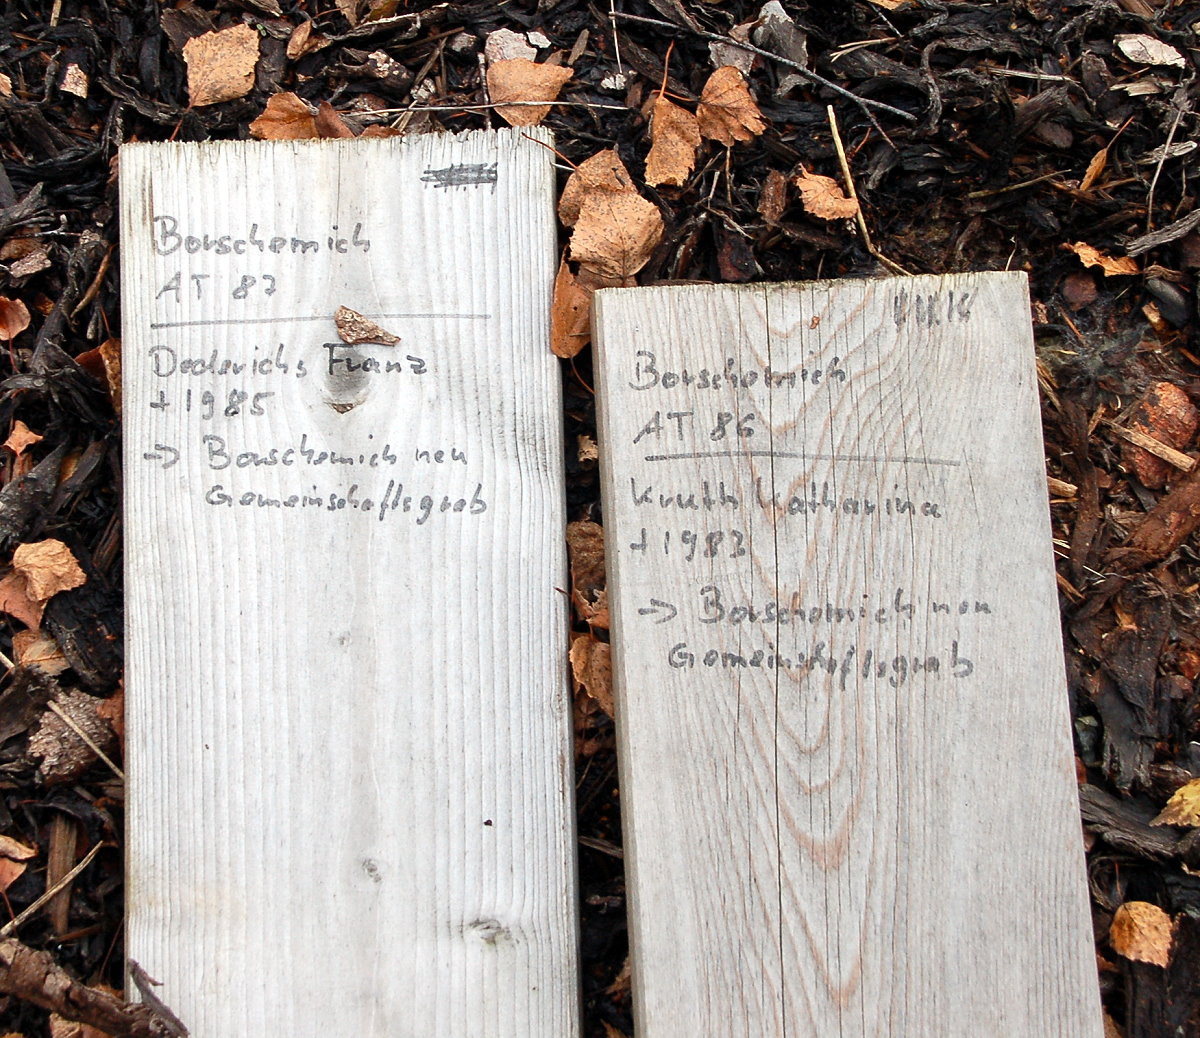 Borschemich
AT 87
Dederichs Franz
+1985
→ Borschemich neu
Gemeinschaftsgrab
Borschemich
AT 86
Kruth Katharina
+1983
→ Borschemich neu
Gemeinschaftsgrab